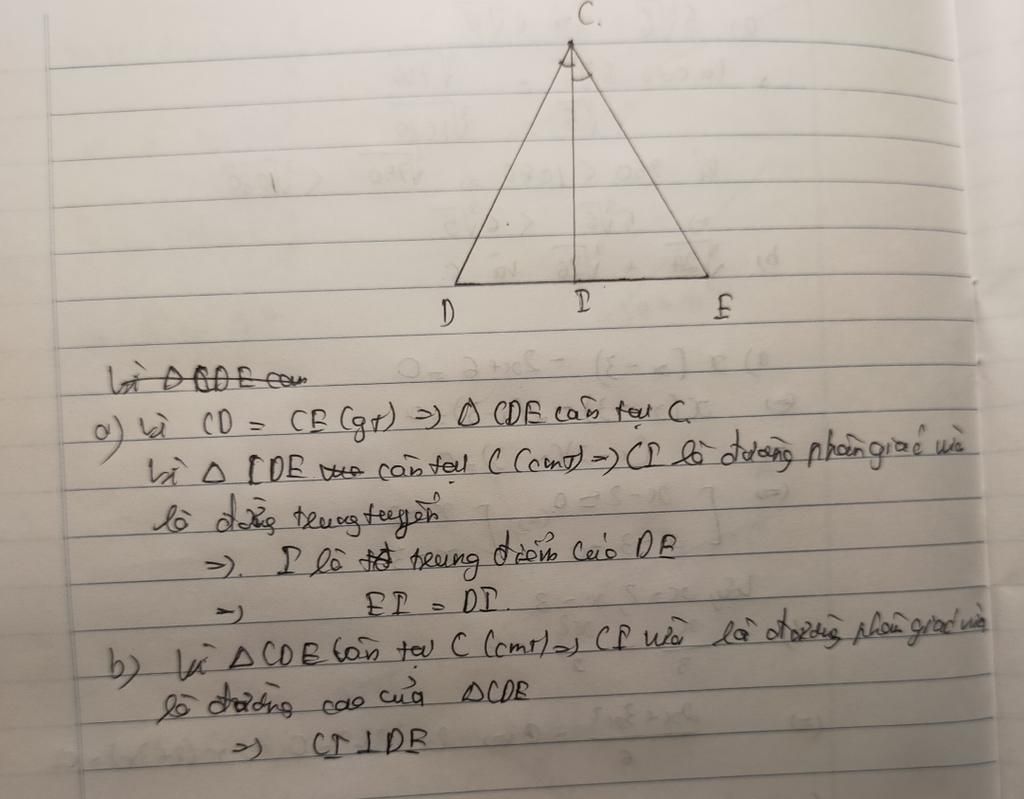 C.
D I E
Vì ΔCDE cân
a) Vì CD = CE (gt) => Δ CDE cân tại C.
Vì Δ CDE cân tại C (cmt) => CI là đường phân giác vừa
là đường trung tuyến
=> I là trung điểm của DE
=> EI = DI.
b) Vì ΔCDE cân tại C (cmt) => CI vừa là đường phân giác vừa
là đường cao của ΔCDE
=> CI ⊥ DE